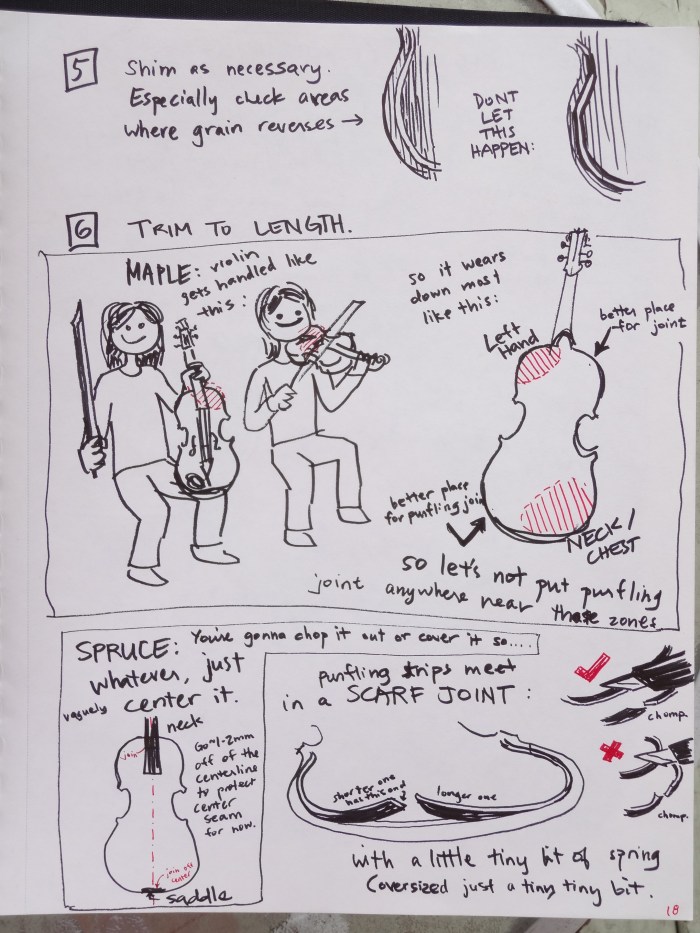 5
Shim as necessary.
Especially check areas
where grain reverses →
DONT
LET
THIS
HAPPEN:
6
TRIM TO LENGTH.
MAPLE: violin
gets handled like
this:
so it wears
down most
like this:
Left
Hand
better place
for joint
better place
for purfling join
NECK/
CHEST
so let's not put purfling
joint anywhere near these zones
SPRUCE: You're gonna chop it out or cover it so....
whatever, just
vaguely center it.
neck
join
Go ~1-2mm
off of the
centerline
to protect
center
seam
for now.
join off
center
saddle
purfling strips meet
in a SCARF JOINT:
chomp.
chomp.
shorter one
has this end
longer one
with a little tiny bit of spring
(oversized just a tiny tiny bit.
18